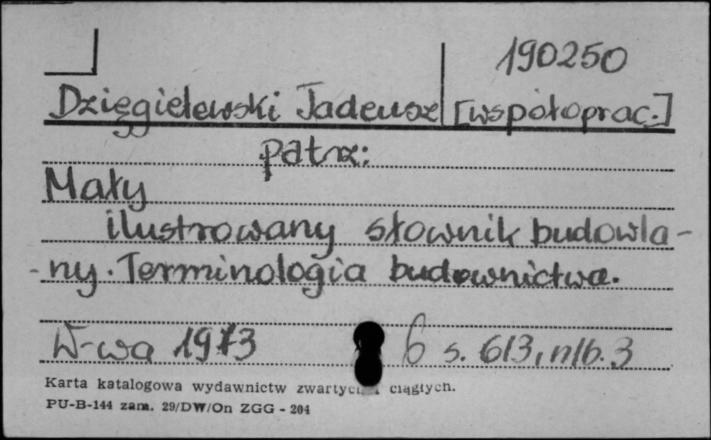 190250
Dzięgielewski Tadeusz [współoprac.]
patrz:
Mały
ilustrowany słownik budowla-
-ny. Terminologia budownictwa.
W-wa 1973 s. 613, nlb. 3
Karta katalogowa wydawnictw ciągłych.
PU-B-144 zam. 29/DW/On ZGG - 204